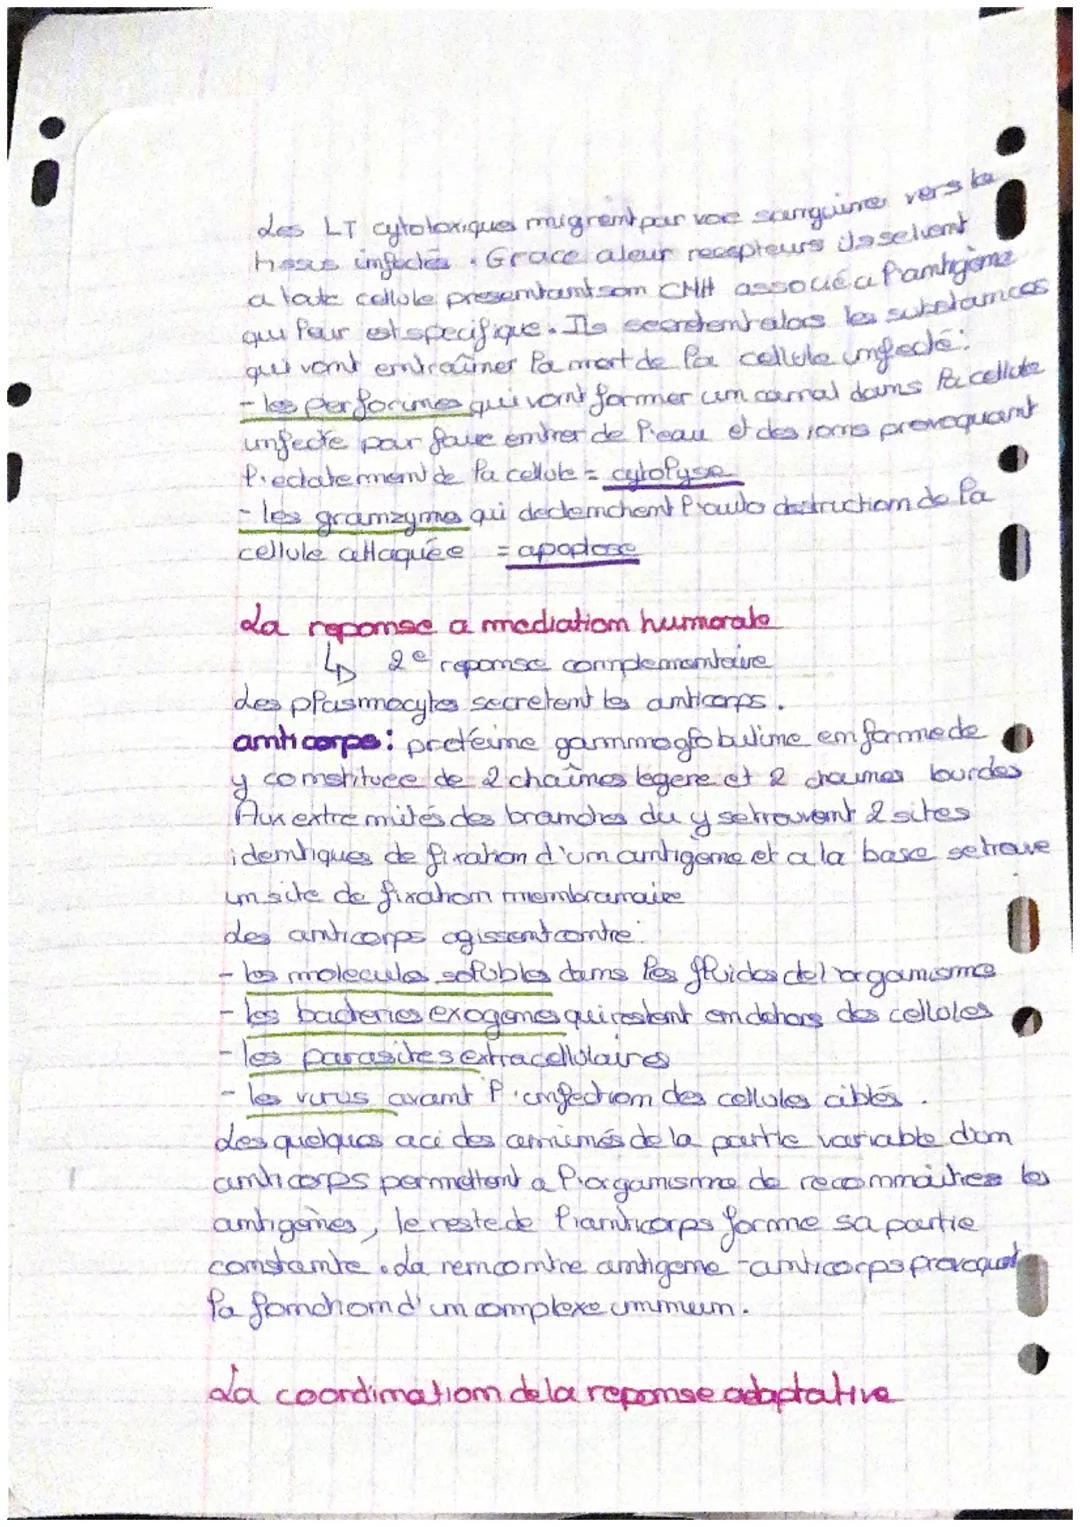 Les LT cytotoxiques migrent par voie sanguine vers le
tissus infectés. Grace a leur recepteurs ils se lient
a toute cellule presentant son CMH associé a l'antigène
qui leur est specifique. Ils secretent alors les substances
qui vont entraîner la mort de la cellule infecté:
- les perforines qui vont former un canal dans la cellule
infecte pour faire entrer de l'eau et des ions provoquant
l'eclatement de la cellule = cytolyse
- les granzymes qui declenchent l'auto destruction de la
cellule attaquée = apoptose
La reponse a mediation humorale
↳ 2e reponse complementaire
Les plasmocytes secretent les anticorps.
anticorps: proteine gammaglobuline en forme de
y constituée de 2 chaînes legere et 2 chaines lourdes
Aux extremités des branches du y se trouvent 2 sites
identiques de fixation d'un antigene et a la base se trouve
un site de fixation membranaire
Les anticorps agissent contre:
- les molecules solubles dans les fluides de l'organisme
- les bacteries exogenes qui restent en dehors des cellules
- les parasites extracellulaires
- les virus avant l'infection des cellules ciblés.
Les quelques acides aminés de la partie variable d'un
anticorps permettent a l'organisme de reconnaitres les
antigènes, le reste de l'anticorps forme sa partie
constante. La rencontre antigene-anticorps provoquet
la fonction d'un complexe immun.
La coordination de la reponse adaptative